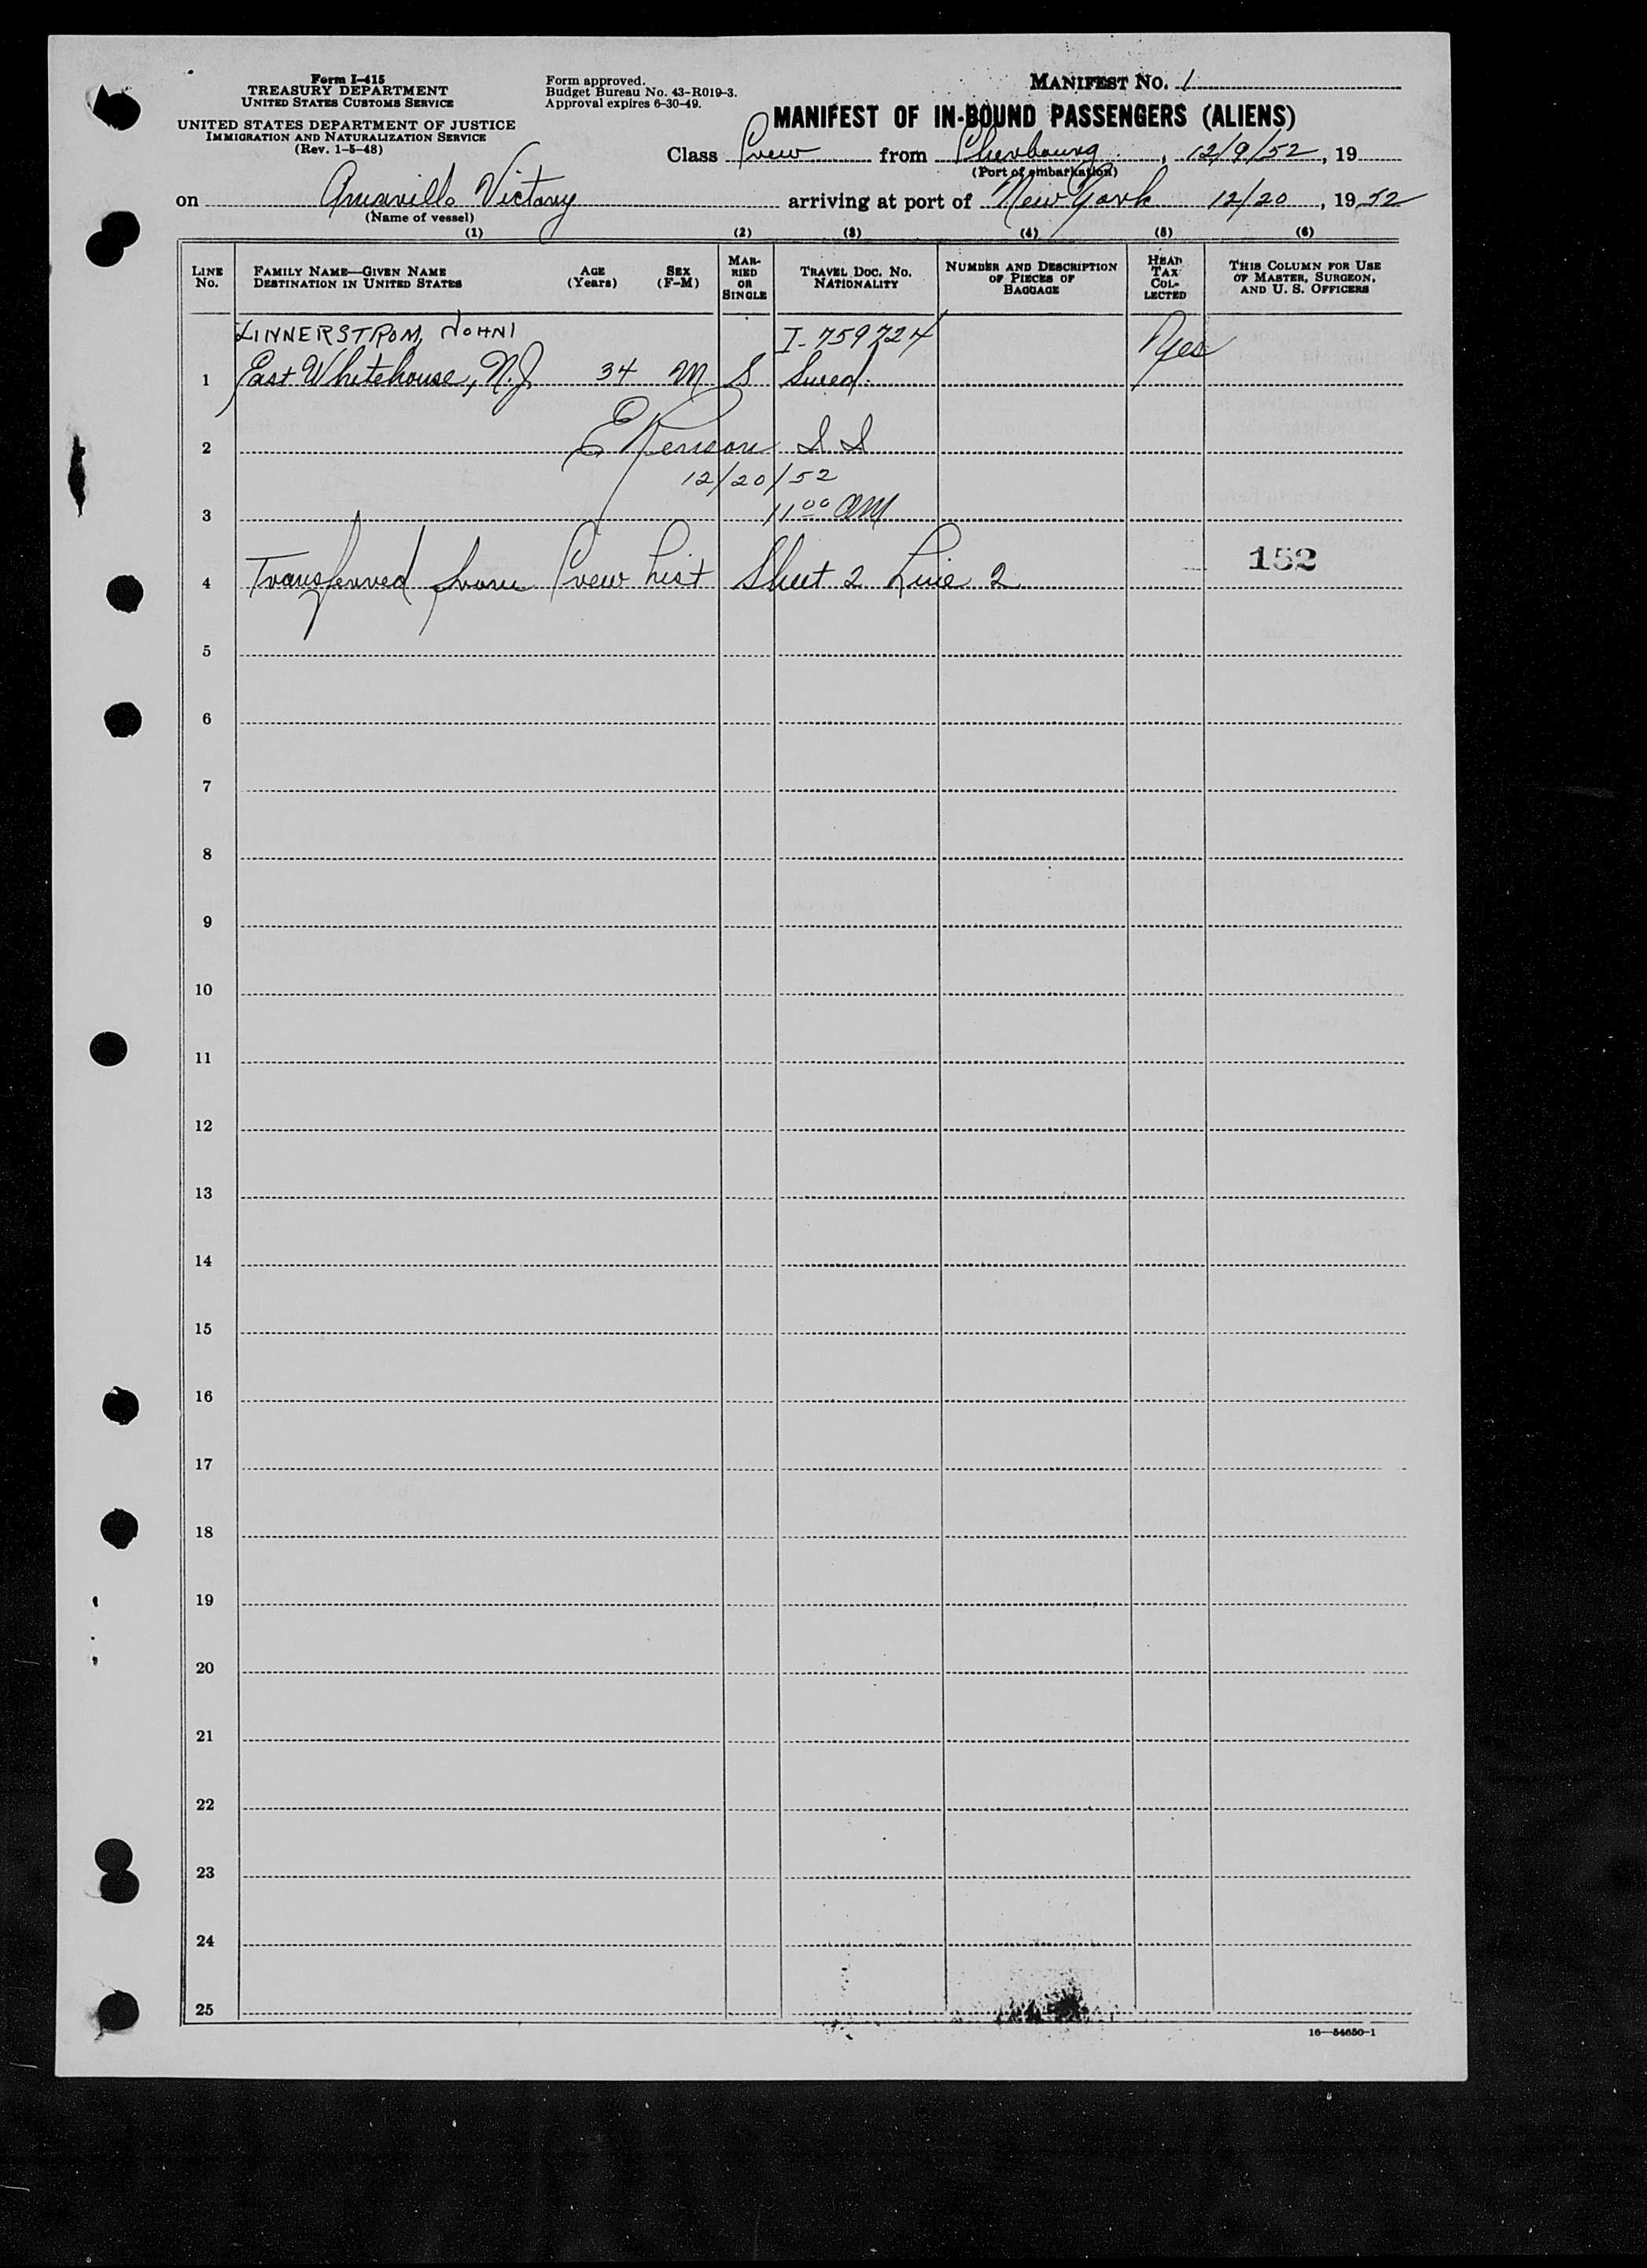 Form I-415
TREASURY DEPARTMENT
UNITED STATES CUSTOMS SERVICE
UNITED STATES DEPARTMENT OF JUSTICE
IMMIGRATION AND NATURALIZATION SERVICE
(Rev. 1-5-48)
Form approved.
Budget Bureau No. 43-R019-3.
Approval expires 6-30-49.
MANIFEST NO. 1
MANIFEST OF IN-BOUND PASSENGERS (ALIENS)
Class Crew from Cherbourg, 12/9/52, 19
(Port of embarkation)
on Amarillo Victory arriving at port of New York 12/20, 1952
(Name of vessel)
(1) (2) (3) (4) (5) (6)
LINE NO.
FAMILY NAME—GIVEN NAME
DESTINATION IN UNITED STATES
AGE (Years)
SEX (F-M)
MARRIED OR SINGLE
TRAVEL DOC. NO.
NATIONALITY
NUMBER AND DESCRIPTION OF PIECES OF BAGGAGE
HEAD TAX COLLECTED
THIS COLUMN FOR USE OF MASTER, SURGEON, AND U. S. OFFICERS
LINNERSTROM, JOHN I-759724 yes
1 East Whitehouse, N.J. 34 M S Swed.
2 I I
12/20/52
3 11 00 AM
152
4 Transferred from Crew List Sheet 2 Line 2
5
6
7
8
9
10
11
12
13
14
15
16
17
18
19
20
21
22
23
24
25
16—54650-1